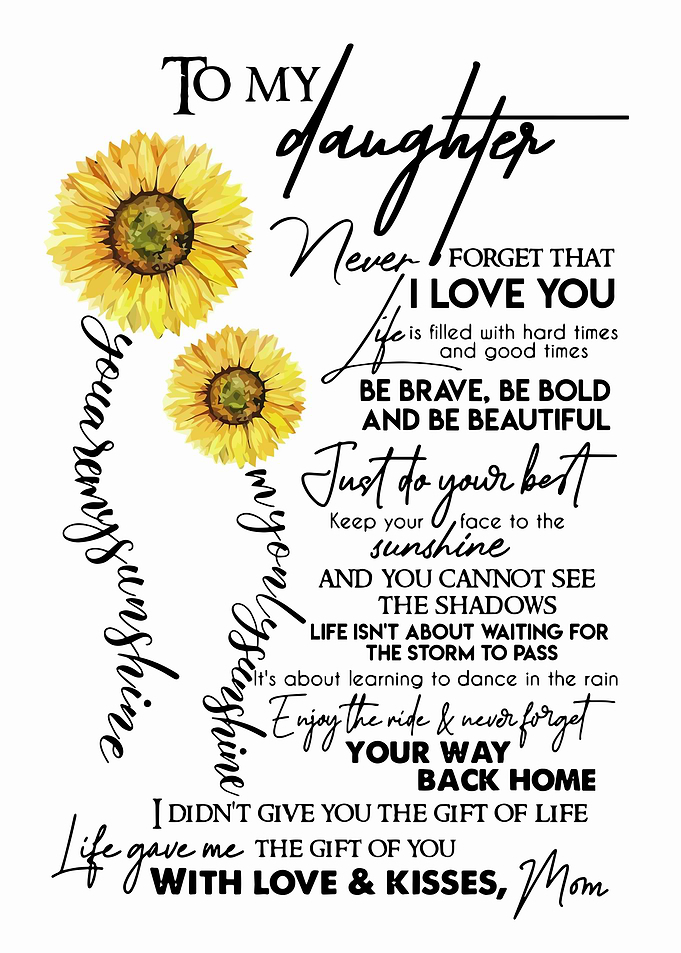 To my
daughter
Never FORGET THAT
I LOVE YOU
Life is filled with hard times
and good times
BE BRAVE, BE BOLD
AND BE BEAUTIFUL
Just do your best
Keep your face to the
sunshine
AND YOU CANNOT SEE
THE SHADOWS
LIFE ISN'T ABOUT WAITING FOR
THE STORM TO PASS
It's about learning to dance in the rain
Enjoy the ride & never forget
YOUR WAY
BACK HOME
I DIDN'T GIVE YOU THE GIFT OF LIFE
Life gave me THE GIFT OF YOU
WITH LOVE & KISSES, Mom
you are my sunshine
my only sunshine